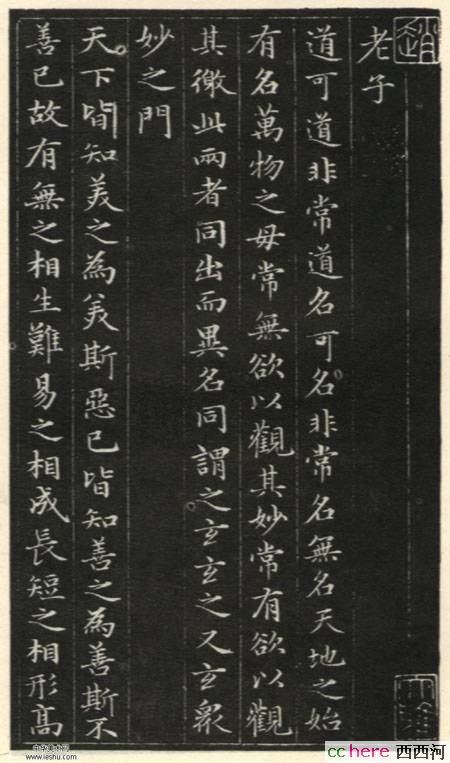 老子
道可道非常道名可名非常名無名天地之始
有名萬物之母常無欲以觀其妙常有欲以觀
其徼此兩者同出而異名同謂之玄玄之又玄衆
妙之門
天下皆知美之為美斯惡已皆知善之為善斯不
善已故有無之相生難易之相成長短之相形高
趙
www.ieshu.com
cchere 西西河